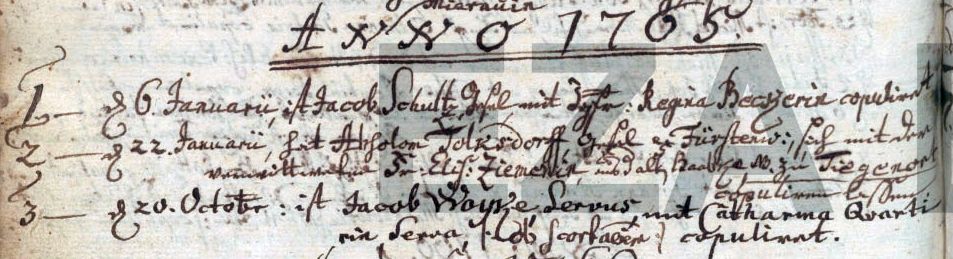 ANNO 1765.
1 — d 6 Januarii, ist Jacob Schultz Gesel mit Jgfr: Regina Beczerin copuliret
2 — d 22. Januarii, hat Absolom Tolksdorff Gesel ex Fürstenw:, sich mit der
verwittwete Fr: Elis: Ziemenin, zu Tiegenort
copuliren lassen
3 — d 20. Octobr: ist Jacob Woyke Servus, mit Catharina Quarti
rin Serva, copuliret.
EZA